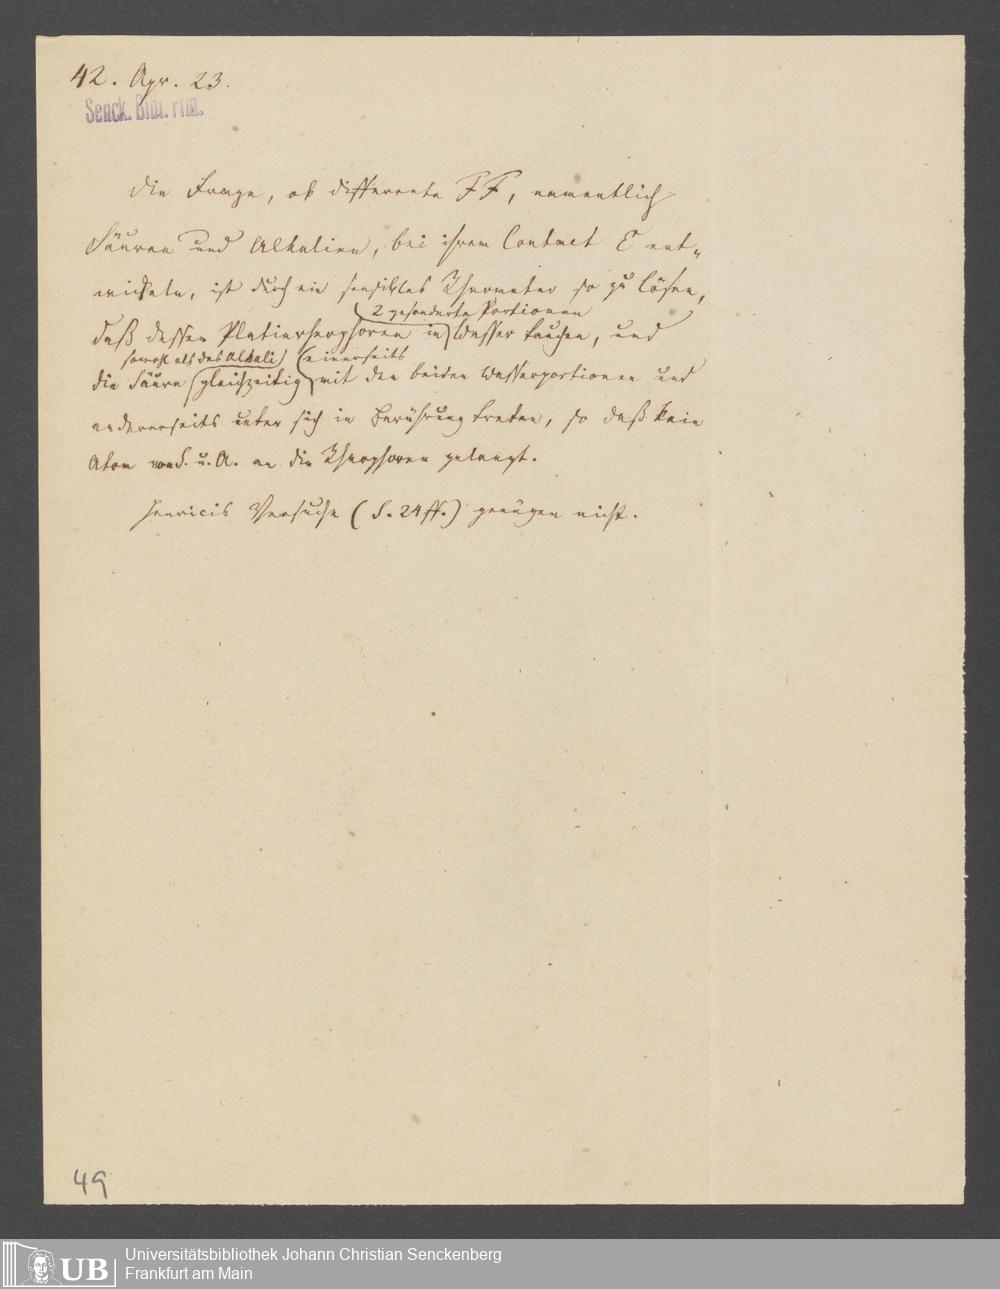 42. Apr. 23.
Senck. Bibl. Ffm.
Die Frage, ob differente FF, namentlich
Säuren und Alkalien, bei ihrem Contact E ent-
wickeln, ist durch ein sensibles Thermometer so zu lösen,
2 gesonderte Portionen
daß dessen in Wasser tauchen, und
sowohl als das Alkali einerseits
die Säure gleichzeitig mit den beiden Wasserportionen und
andererseits unter sich in Berührung treten, so daß kein
Atom von S. u. A. an die gelangt.
Henricis Versuche (S. 24 ff.) genügen nicht.
49
UB
Universitätsbibliothek Johann Christian Senckenberg
Frankfurt am Main